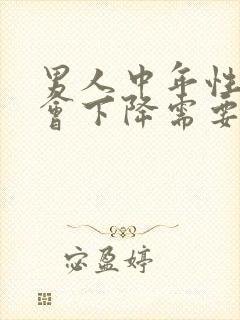 男人中年性
會下降需要
宓盈婷